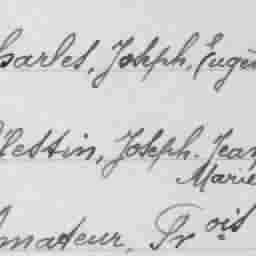 harles, Joseph, Eugèn
élestin, Joseph. Jean
Marie
Amateur, Frois